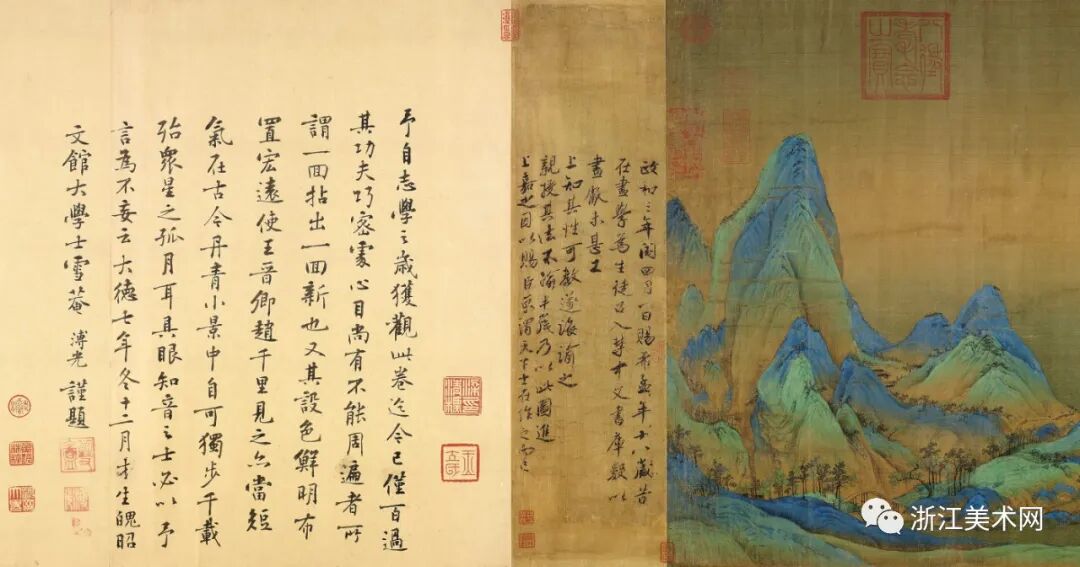 政和三年閏四月一日賜希孟年十八歲昔
在畫學為生徒召入禁中文書庫數以
畫獻未甚工
上知其性可教遂誨諭之
親授其法不踰半歲乃以此圖進
上嘉之因以賜臣京謂天下士在作之而已
予自志學之歲獲觀此卷迄今已僅百過
其功夫巧密處心目尚有不能周遍者所
謂一面拈出一面新也又其設色鮮明布
置宏遠使王晉卿趙千里見之亦當短
氣在古今丹青小景中自可獨步千載
殆眾星之孤月耳具眼知音之士必以予
言為不妄云大德七年冬十二月才生魄昭
文館大學士雪菴 溥光 謹題
浙江美术网